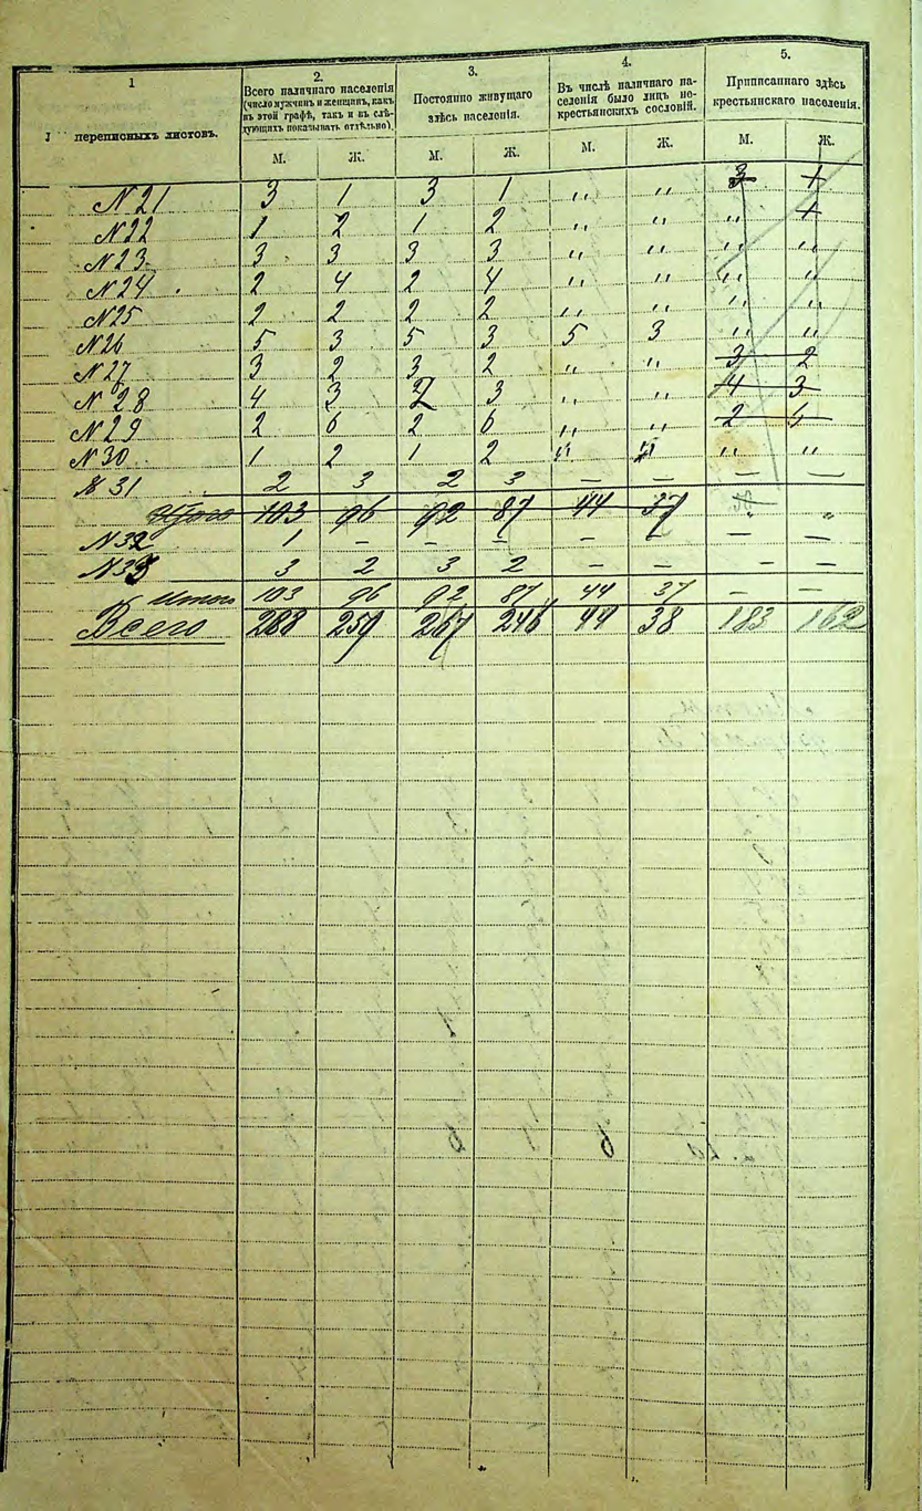 1 2. 3. 4. 5.
переписныхъ листовъ. Всего наличнаго населенія (число мужчинъ и женщинъ, какъ въ этой графѣ, такъ и въ слѣдующихъ показывать отдѣльно). Постоянно живущаго здѣсь населенія. Въ числѣ наличнаго населенія было лицъ некрестьянскихъ сословій. Приписаннаго здѣсь крестьянскаго населенія.
М. Ж. М. Ж. М. Ж. М. Ж.
N 21 3 1 3 1 " " 3 1
N 22 1 2 1 2 " " " 1
N 23 3 3 3 3 " " " "
N 24 2 4 2 4 " " " "
N 25 2 2 2 2 " " " "
N 26 5 3 5 3 5 3 " "
N 27 3 2 3 2 " " 3 2
N 28 4 3 2 3 " " 4 3
N 29 2 6 2 6 " " 2
N 30 1 2 1 2 " " " "
N 31 2 3 2 3 — — — —
Итого 103 96 92 87 44 37 " "
N 32 1 — — — — — — —
N 33 3 2 3 2 — — — —
Итого 103 96 92 87 44 37 — —
Всего 288 259 267 246 44 38 183 162